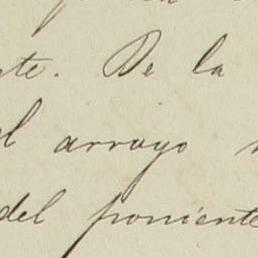 te. De la
el arroyo
del poniente